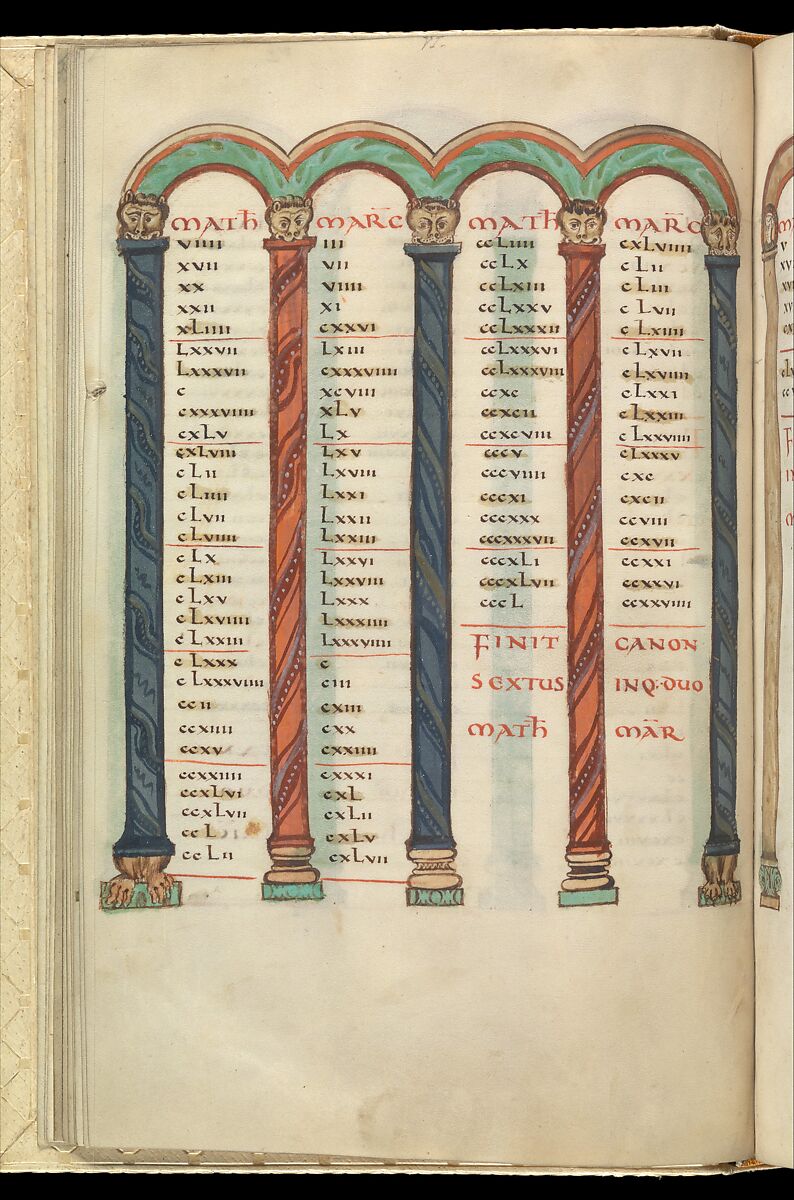 MATH̄ MAR̄C MATH̄ MAR̄C
VIIII III CCLIIII CXLVIIII
XVII VII CCLX CLII
XX VIIII CCLXIII CLIII
XXII XI CCLXXV CLVII
XLIIII CXXVI CCLXXXII CLXIIII
LXXVII LXIII CCLXXXVI CLXVII
LXXXVII CXXXVIIII CCLXXXVIII CLXVIIII
C XCVIII CCXC CLXXI
CXXXVIIII XLV CCXCII CLXXIII
CXLV LX CCXCVIII CLXXVIIII
CXLVIII LXV CCCV CLXXXV
CLII LXVIII CCCVIIII CXC
CLIIII LXXI CCCXI CXCII
CLVII LXXII CCCXXX CCVIII
CLVIIII LXXIII CCCXXXVII CCXVII
CLX LXXVI CCCXLI CCXXI
CLXIII LXXVIII CCCXLVII CCXXVI
CLXV LXXX CCCL CCXXVIIII
CLXVIIII LXXXIIII
CLXXIII LXXXVIIII FINIT CANON
CLXXX C
CLXXXVIIII CIII SEXTUS INQ·DUO
CCII CXIII
CCXIIII CXX MATH̄ MĀR
CCXV CXXIIII
CCXXIIII CXXXI
CCXLVI CXL
CCXLVII CXLII
CCL CXLV
CCLII CXLVII